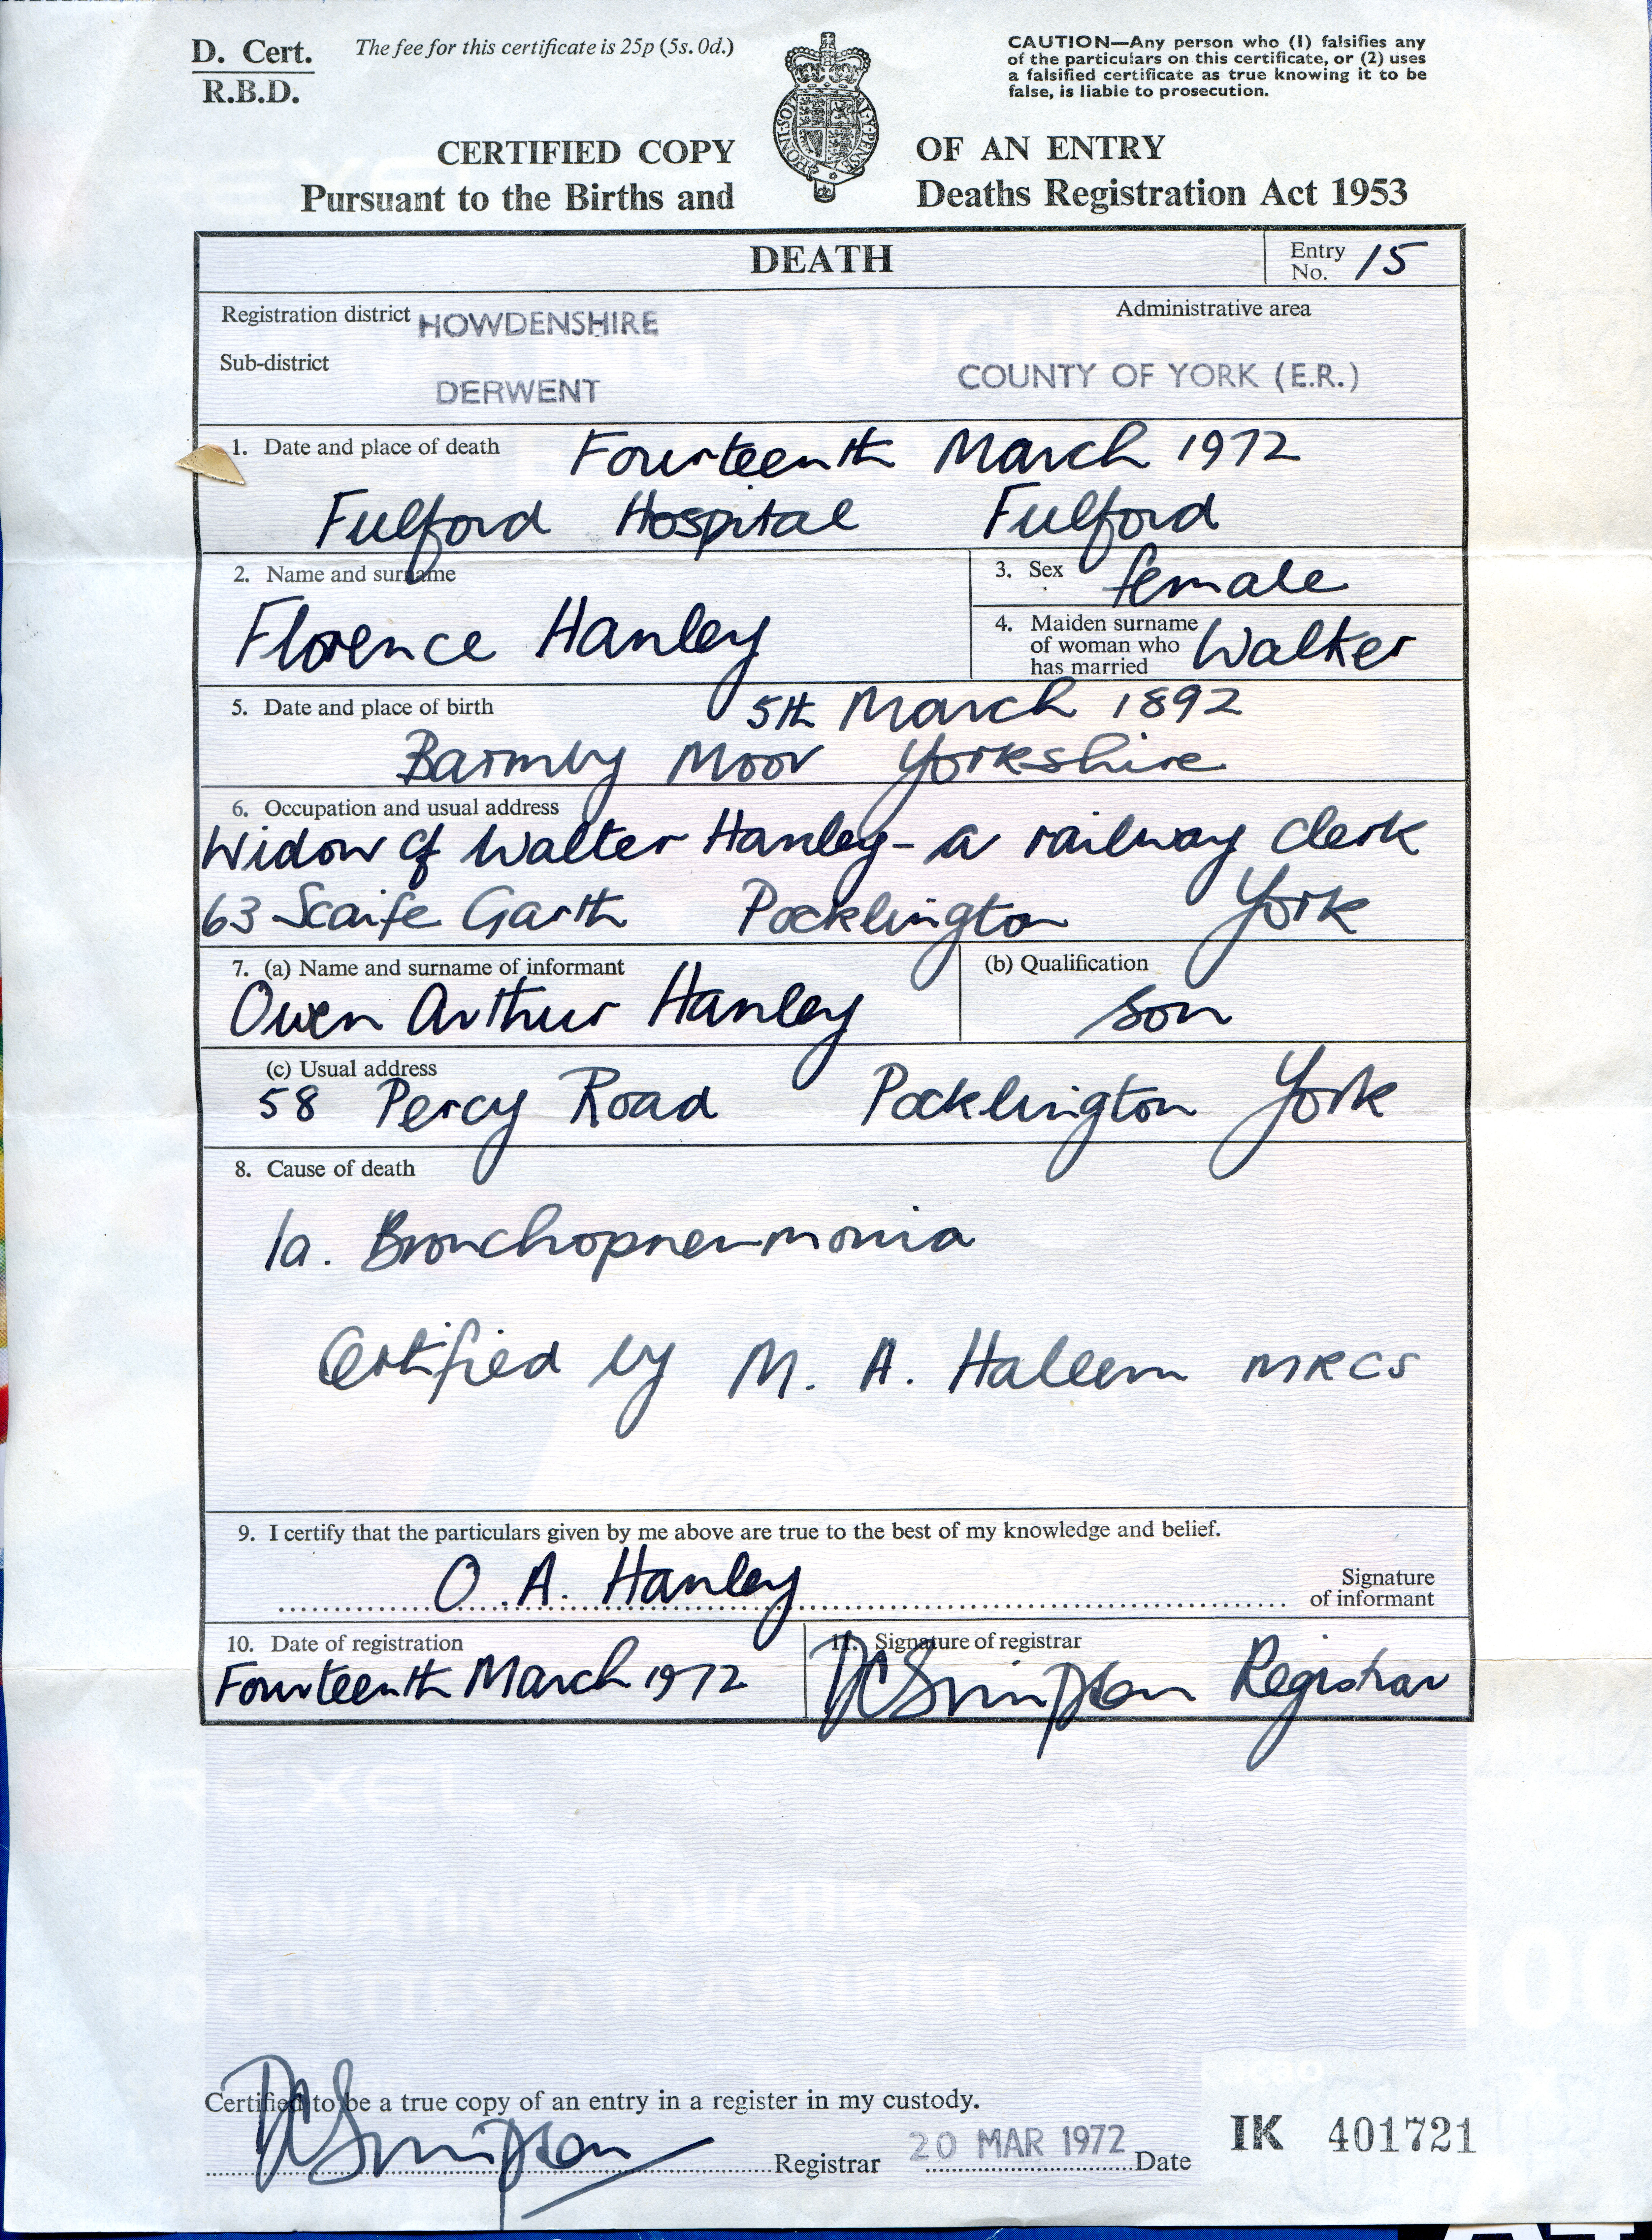 D. Cert.
R.B.D.
The fee for this certificate is 25p (5s. 0d.)
CAUTION—Any person who (1) falsifies any
of the particulars on this certificate, or (2) uses
a falsified certificate as true knowing it to be
false, is liable to prosecution.
CERTIFIED COPY OF AN ENTRY
Pursuant to the Births and Deaths Registration Act 1953
DEATH
Entry No. 15
Registration district HOWDENSHIRE
Administrative area
Sub-district
DERWENT
COUNTY OF YORK (E.R.)
1. Date and place of death Fourteenth March 1972
Fulford Hospital Fulford
2. Name and surname
Florence Hanley
3. Sex female
4. Maiden surname
of woman who
has married
Walker
5. Date and place of birth 5th March 1892
Barmby Moor Yorkshire
6. Occupation and usual address
Widow of Walter Hanley - a railway clerk
63 Scaife Garth Pocklington York
7. (a) Name and surname of informant
Owen Arthur Hanley
(b) Qualification
Son
(c) Usual address
58 Percy Road Pocklington York
8. Cause of death
1a. Bronchopneumonia
Certified by M. A. Haleem MRCS
9. I certify that the particulars given by me above are true to the best of my knowledge and belief.
O. A. Hanley
Signature
of informant
10. Date of registration
Fourteenth March 1972
11. Signature of registrar
Simpson Registrar
REXEL
LAMINATING POUCHES
POCHETTES A PLASTIFIER
100
Certified to be a true copy of an entry in a register in my custody.
Simpson Registrar 20 MAR 1972 Date
IK 401721